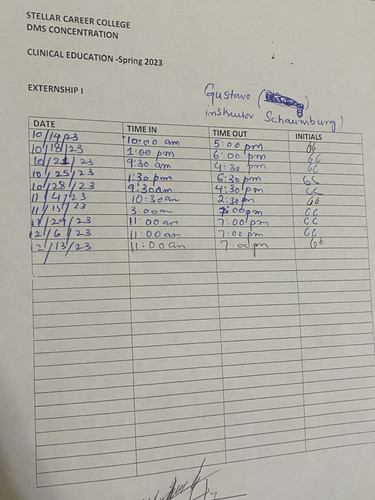 STELLAR CAREER COLLEGE
DMS CONCENTRATION
CLINICAL EDUCATION -Spring 2023
EXTERNSHIP I
Gustavo (
instructor Schaumburg)
DATE TIME IN TIME OUT INITIALS
10/14/23 10:00 am 5:00 pm GG
10/18/23 1:00 pm 6:00 pm GG
10/21/23 9:30 am 4:30 pm GG
10/25/23 1:30 pm 6:30 pm GG
10/28/23 9:30am 4:30 pm GG
11/4/23 10:30am 2:30pm GG
11/15/23 7:00pm GG
11/29/23 11:00am 7:00pm GG
12/6/23 11:00am 7:00pm GG
12/13/23 11:00am 7:00pm GG